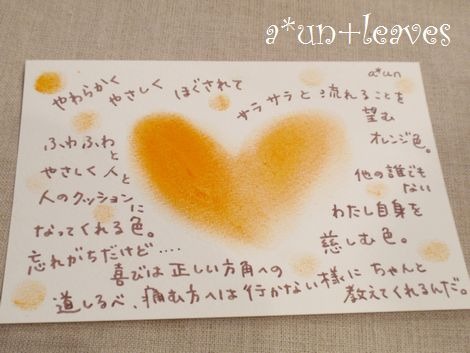 a*un+leaves
a*un
やわらかく
やさしく
ほぐされて
サラサラと流れることを
望む
オレンジ色。
ふわふわ
と
やさしく人と
人のクッション
に
なってくれる色。
忘れがちだけど‥‥
他の誰でも
ない
わたし自身を
慈しむ色。
喜びは正しい方角への
道しるべ、痛む方へは行かない様に ちゃんと
教えてくれるんだ。